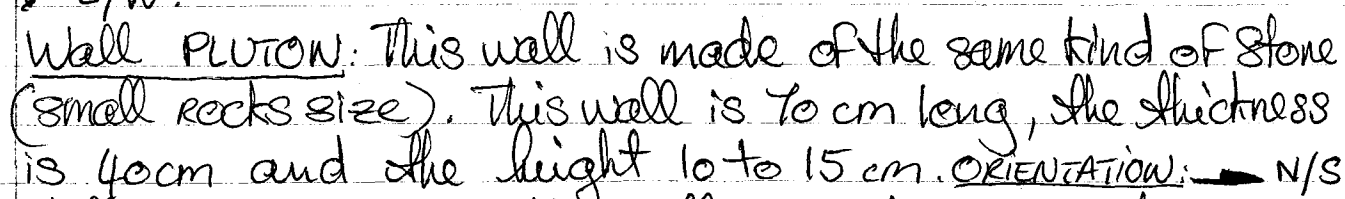 Wall PLUTON: This wall is made of the same kind of stone
(small Rocks size). This wall is 70 cm long, the thickness
is 40cm and the height 10 to 15 cm. ORIENTATION: → N/S